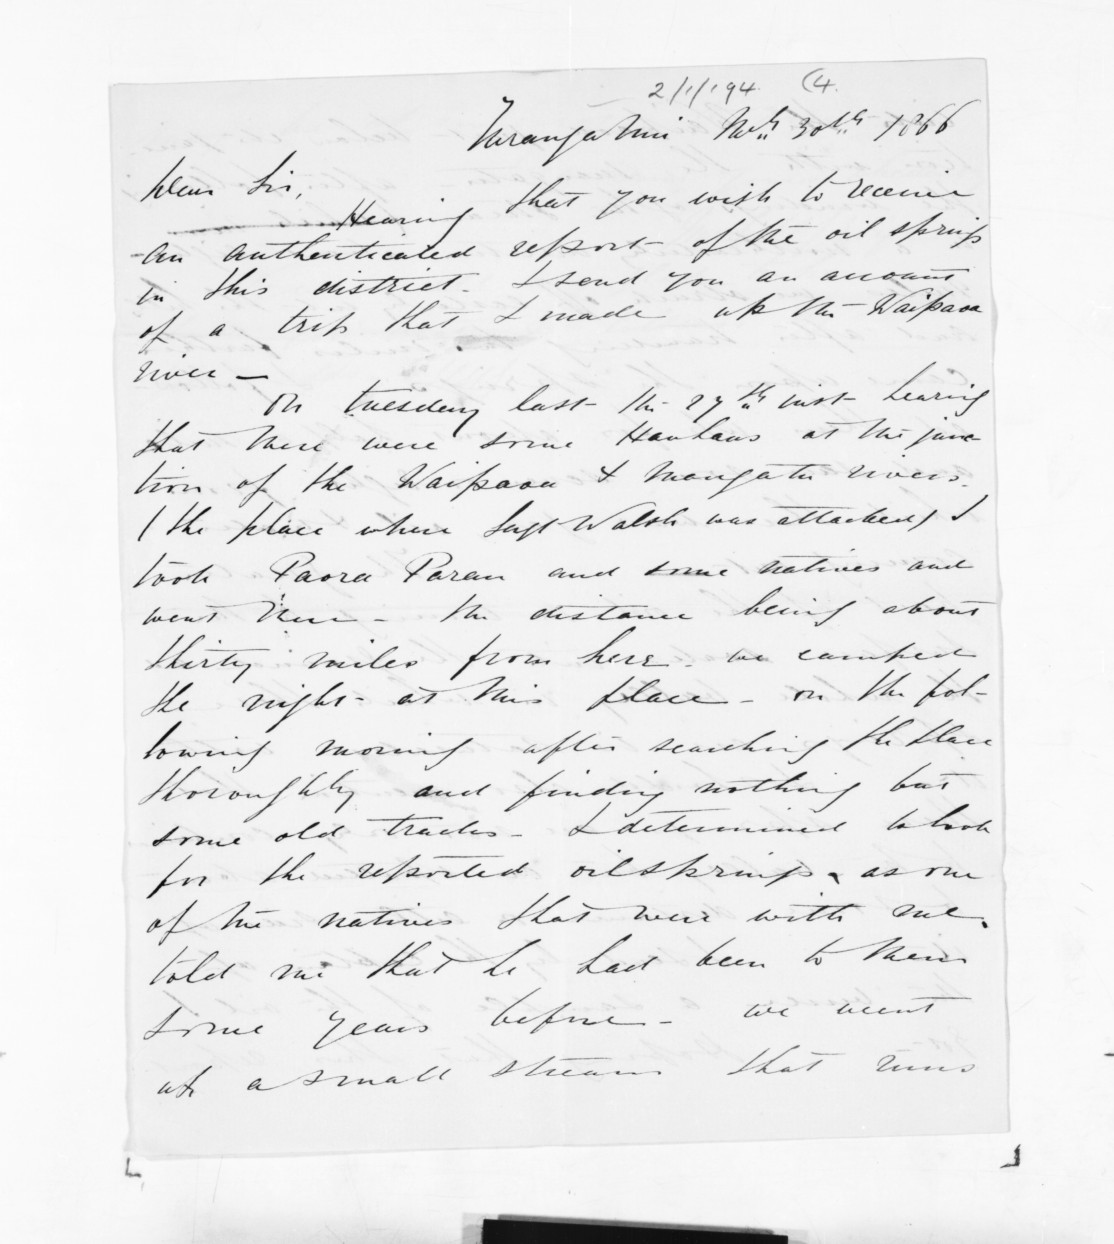 2/1/194. (4.
Turanga Nui Novr 30th 1866
Dear Sir,
Hearing that you wish to receive
an authenticated report of the oil springs
in this district - I send you an account
of a trip that I made up the Waipaoa
river -
On tuesday last the 27th inst hearing
that there were some Hauhaus at the junc
tion of the Waipaoa & Mangatu rivers.
(the place where Sergt Walsh was attacked) I
took Paora Parau and some natives and
went there - the distance being about
thirty miles from here - we camped
the night - at this place - on the fol-
lowing morning after searching the place
thoroughly and finding nothing but
some old tracks - I determined to look
for the reported oil springs, as one
of the natives that were with me,
told me that he had been to them
some years before - we went
up a small stream that runs